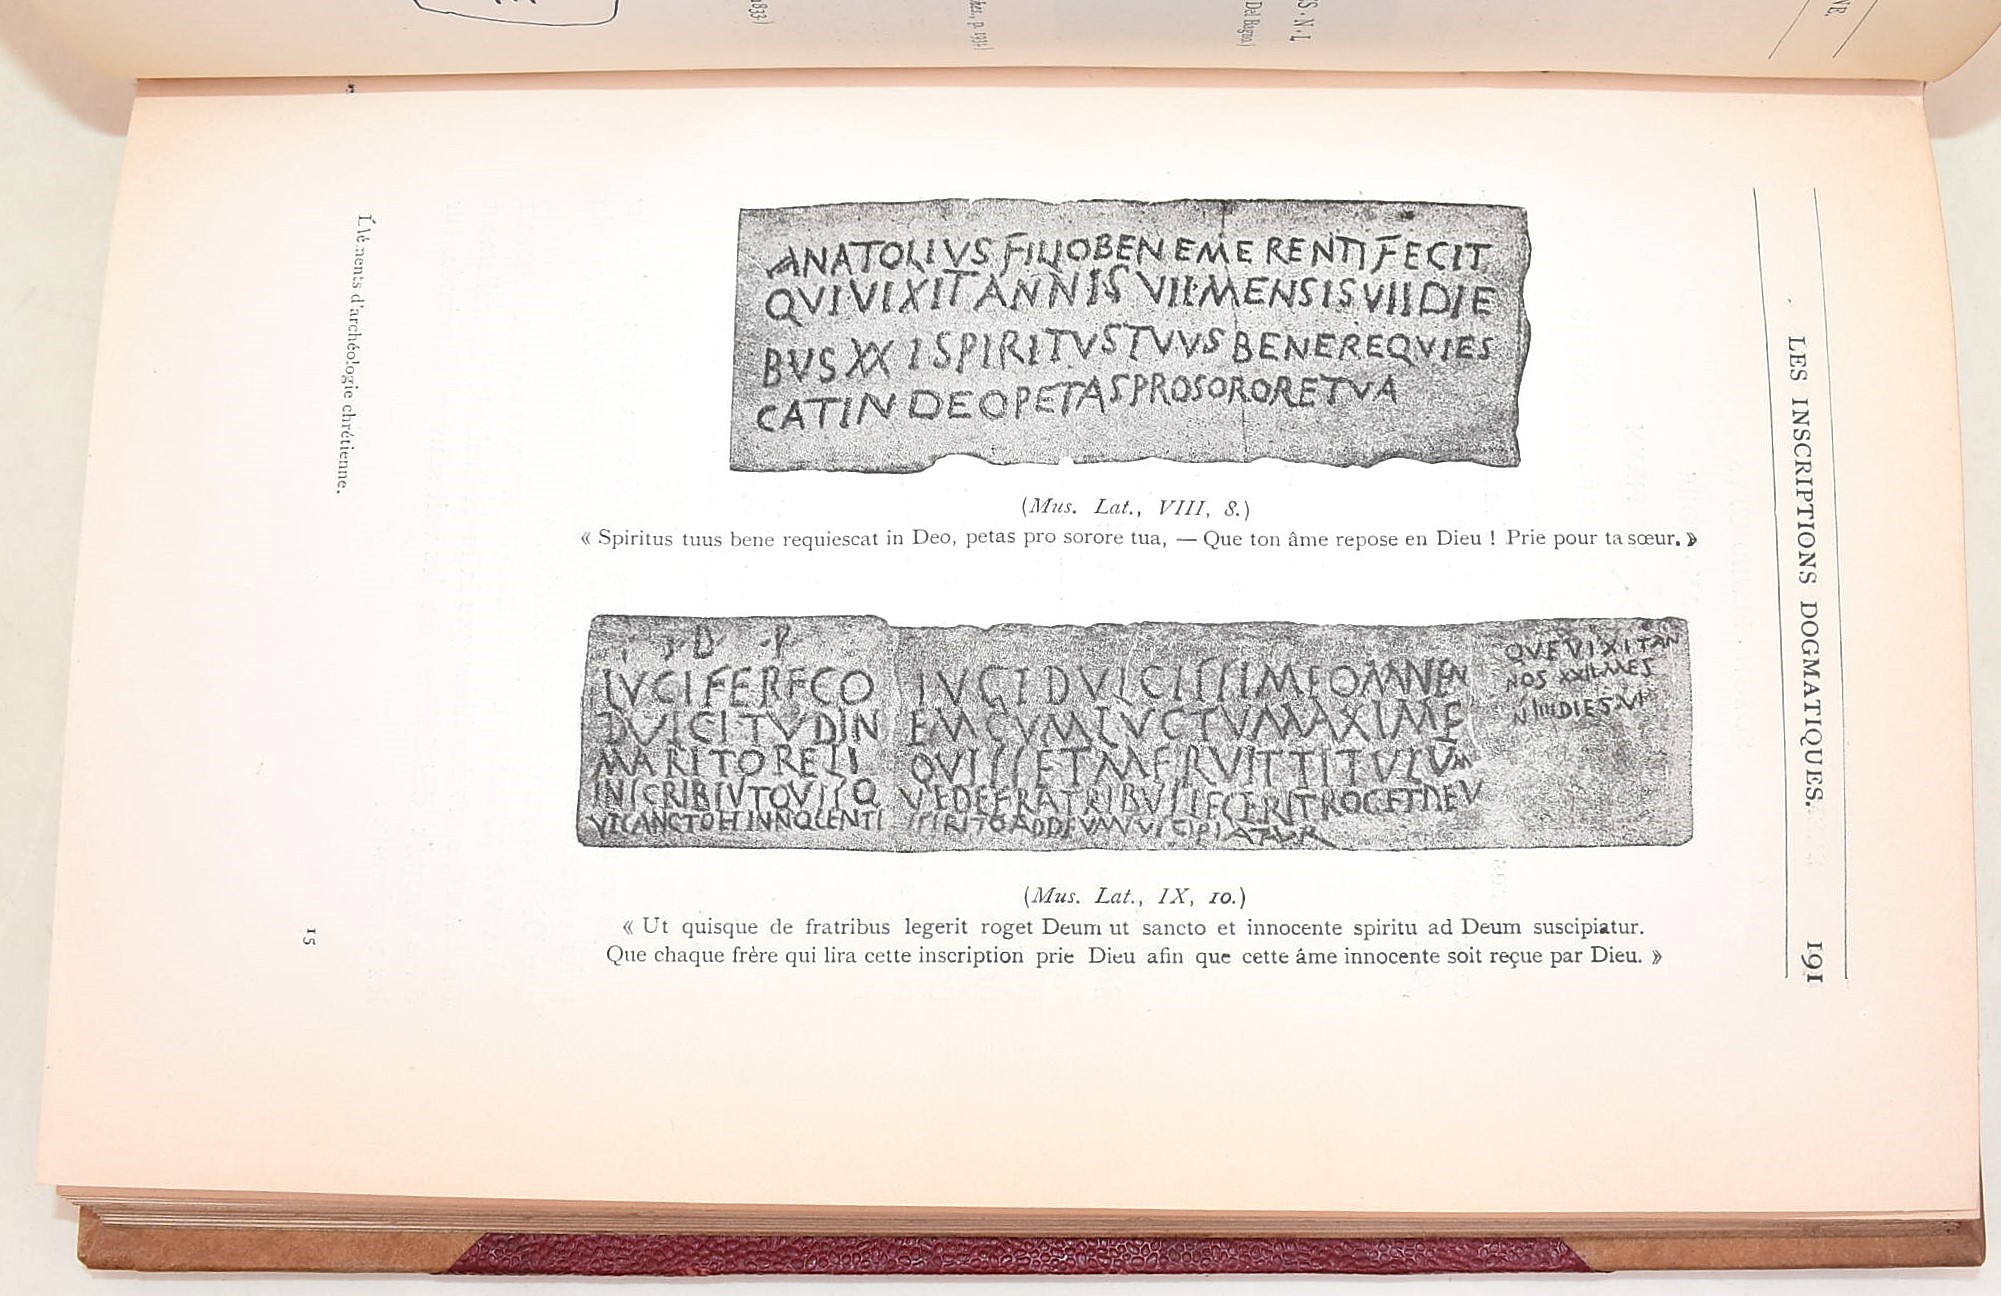 LES INSCRIPTIONS DOGMATIQUES. 191
ANATOLIVS FILIO BENEMERENTI FECIT
QVI VIXIT ANNIS VII MENSIS VII DIE
BVS XXI SPIRITVS TVVS BENE REQVIES
CAT IN DEO PETAS PRO SORORE TVA
(Mus. Lat., VIII, 8.)
« Spiritus tuus bene requiescat in Deo, petas pro sorore tua, — Que ton âme repose en Dieu ! Prie pour ta sœur. »
LVCIFERE CO IVGI DVLCISSIME OMNEN
DVLCITVDIN EM CVM LVCTV MAXIME
MARITO RELI QVISSET MERVIT TITVLVM
INSCRIBI VT QVISQ VE DE FRATRIBVS LEGERIT ROGET DEV
VT SANCTO ET INNOCENTI SPIRITO AD DEVM SVSCIPIATVR
QVE VIXIT AN
NOS XXII MES
N IIII DIES VI
(Mus. Lat., IX, 10.)
« Ut quisque de fratribus legerit roget Deum ut sancto et innocente spiritu ad Deum suscipiatur.
Que chaque frère qui lira cette inscription prie Dieu afin que cette âme innocente soit reçue par Dieu. »
Éléments d'archéologie chrétienne.
15